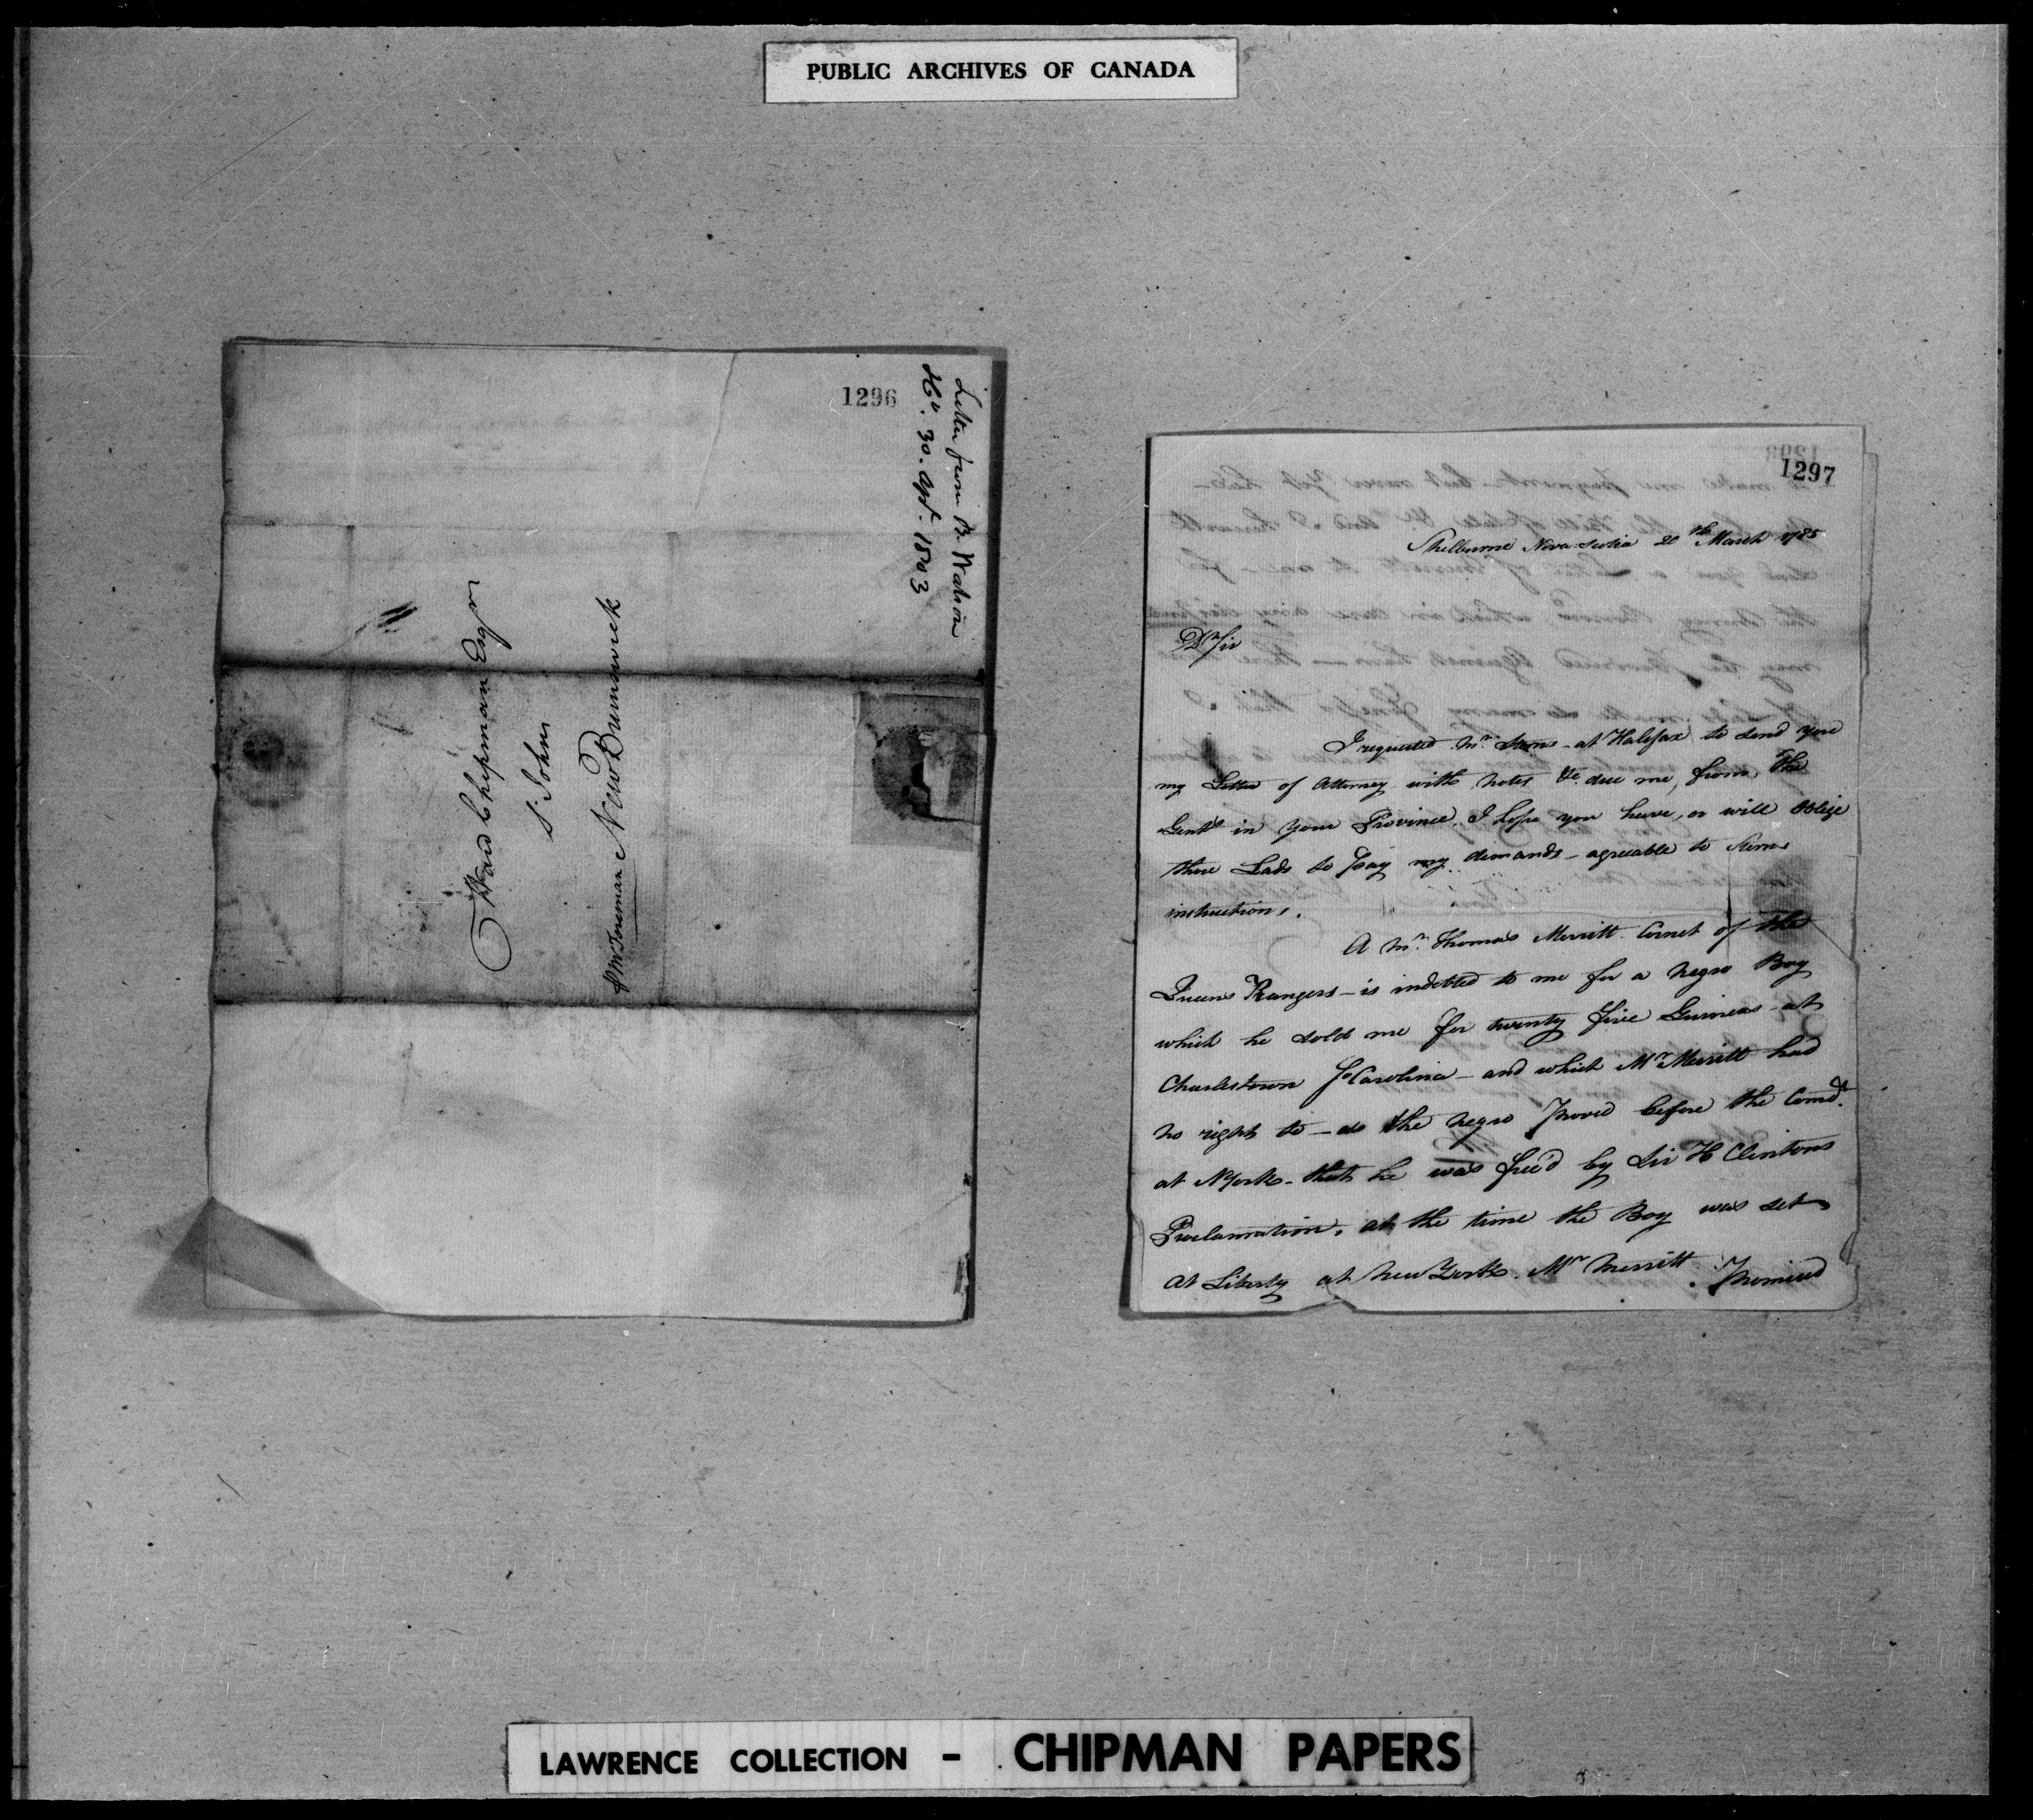 PUBLIC ARCHIVES OF CANADA
1296
Letter from B. Watson
Hx. 30. Apl. 1803
Ward Chipman Esqr
St. Johns
New Brunswick
1297
Shelburne Nova Scotia 20th March 1785
Dr Sir
I requested Mr. Sterns at Halifax to send you
my Letter of Attorney with notes &c. due me, from, the
Gentn. in your Province. I hope you have, or will oblige
those Lads to pay my demands - agreeable to Sterns
instructions.
A Mr. Thomas Merritt Cornet of the
Queens Rangers - is indebted to me for a negro Boy
which he sold me for twenty five Guineas at
Charlestown So Carolina - and which Mr Merritt had
no right to - as the negro proved before the Comdt.
at N York - that he was free'd by Sir H Clintons
Proclamation, at the time the Boy was set
at Liberty at New York. Mr Merritt promised
LAWRENCE COLLECTION - CHIPMAN PAPERS